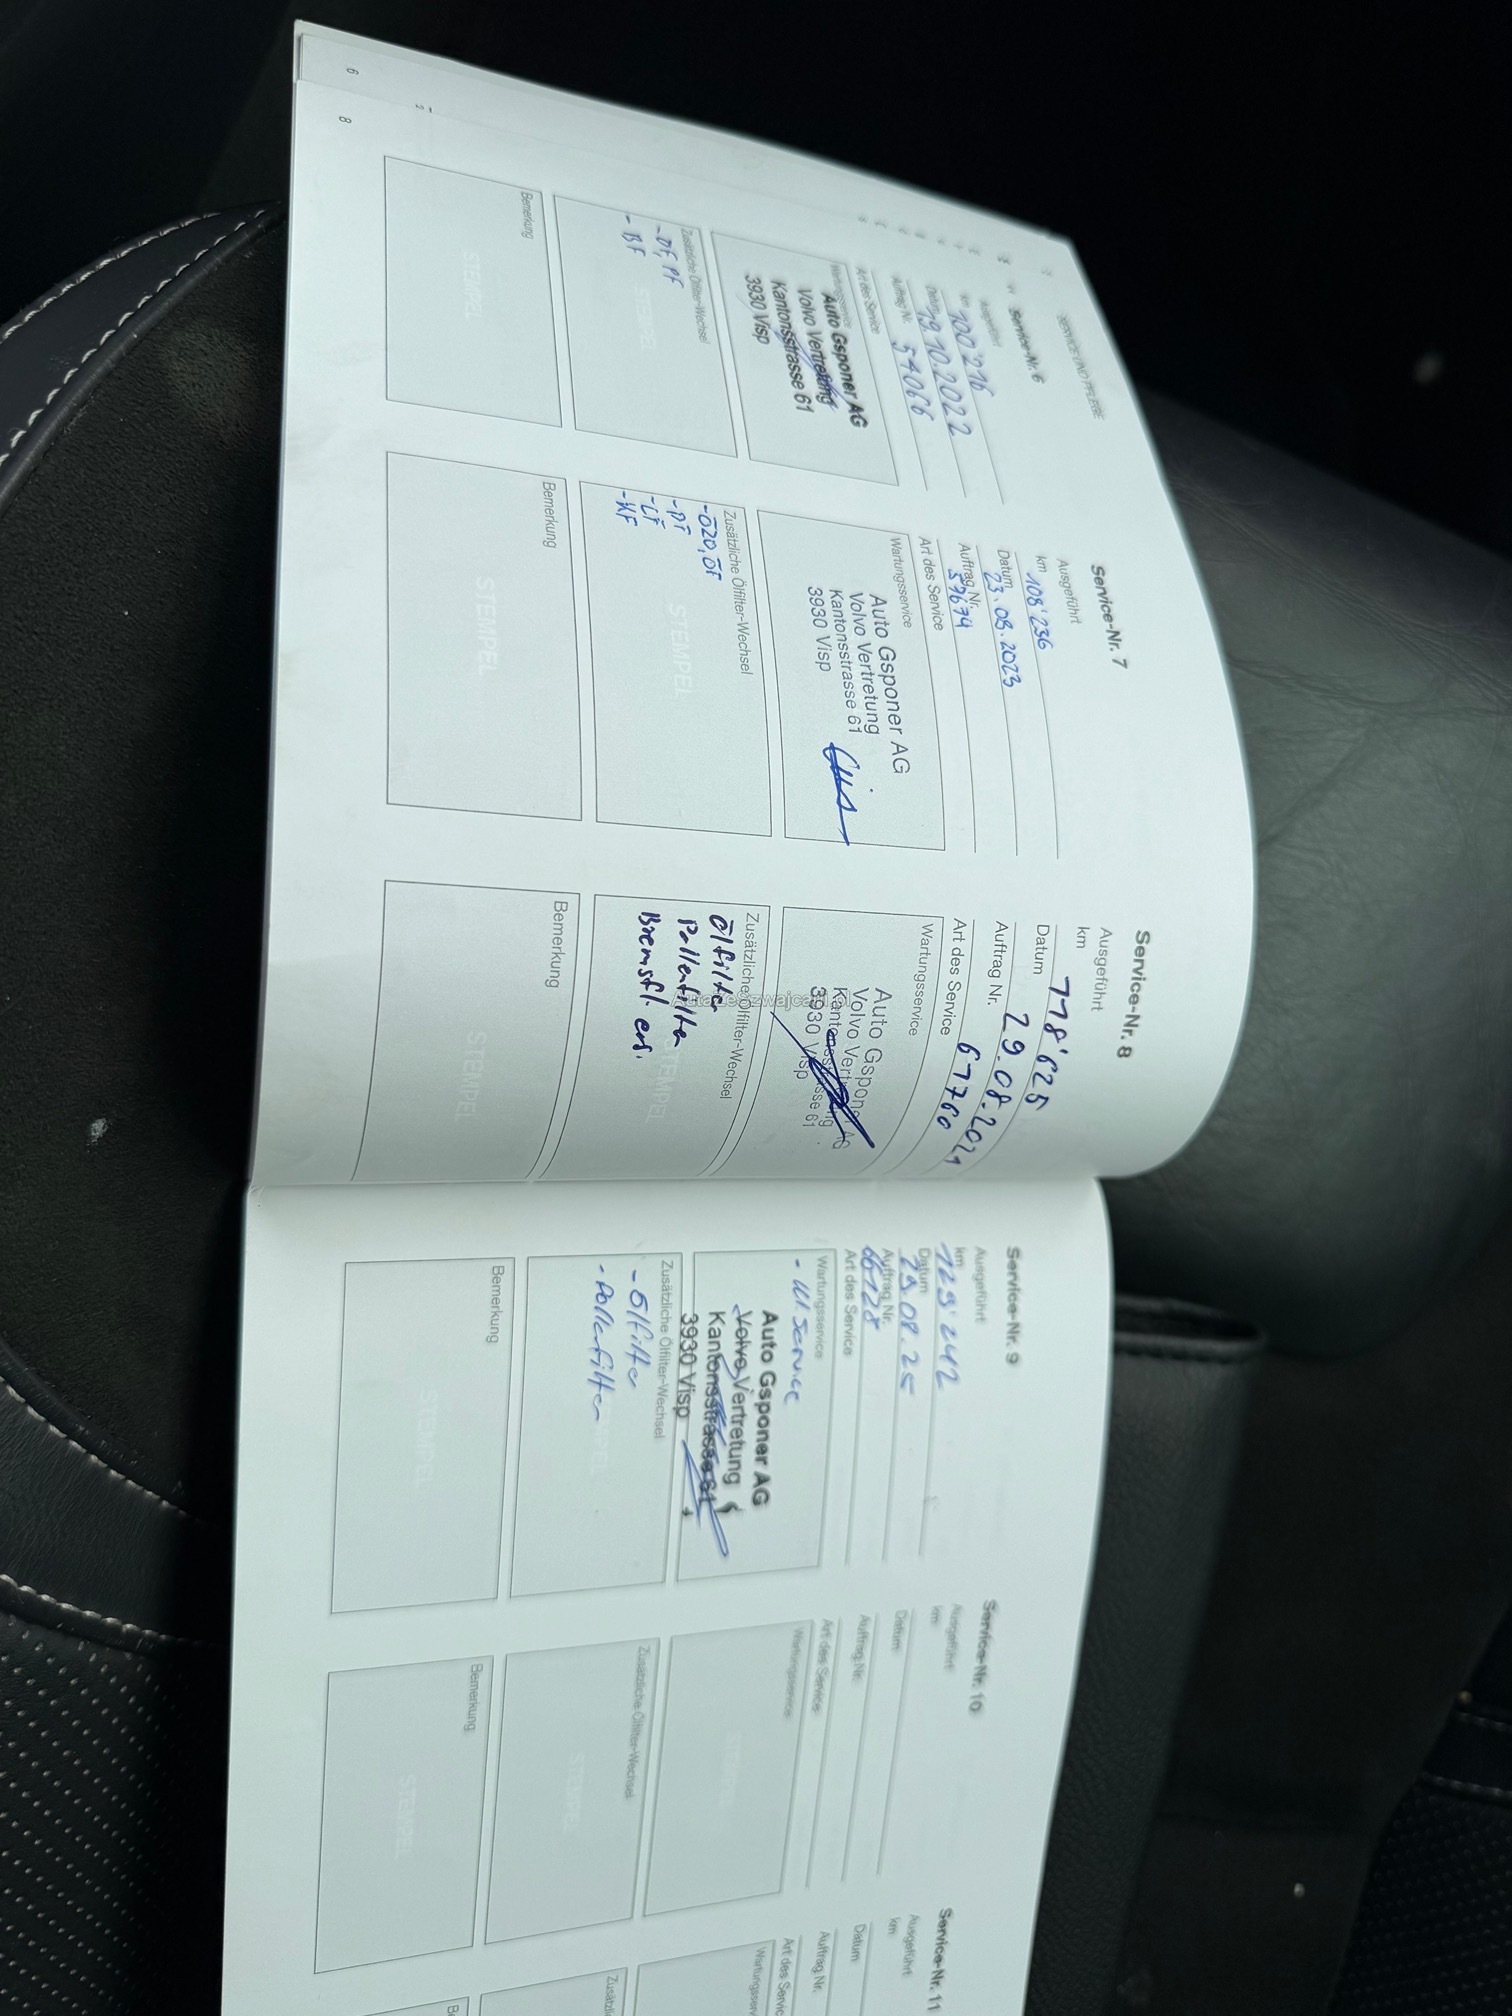 6
8
SERVICE UND PFLEGE
Service-Nr. 6
Ausgeführt
km 100'216
Datum 19.10.2022
Auftrag Nr. 54066
Art des Service
Wartungsservice
Auto Gsponer AG
Volvo Vertretung
Kantonsstrasse 61
3930 Visp
Zusätzliche Ölfilter-Wechsel
- ÖF, PF
- BF
STEMPEL
Bemerkung
STEMPEL
Service-Nr. 7
Ausgeführt
km 108'236
Datum 23.08.2023
Auftrag Nr. 59674
Art des Service
Wartungsservice
Auto Gsponer AG
Volvo Vertretung
Kantonsstrasse 61
3930 Visp
Zusätzliche Ölfilter-Wechsel
- 020, ÖF
- PF
- LF
- KF
STEMPEL
Bemerkung
STEMPEL
Service-Nr. 8
Ausgeführt
km 118'625
Datum 29.08.2024
Auftrag Nr. 67760
Art des Service
Wartungsservice
Auto Gsponer AG
Volvo Vertretung
Kantonsstrasse 61
3930 Visp
Zusätzliche Ölfilter-Wechsel
Ölfilter
Pollenfilter
Bremsfl. ers.
STEMPEL
Bemerkung
STEMPEL
Service-Nr. 9
Ausgeführt
km 129'242
Datum 29.08.25
Auftrag Nr. 66128
Art des Service
Wartungsservice
- kl. Service
Auto Gsponer AG
Volvo Vertretung
Kantonsstrasse 61
3930 Visp
Zusätzliche Ölfilter-Wechsel
- Ölfilter
- Pollenfilter
STEMPEL
Bemerkung
STEMPEL
Service-Nr. 10
Ausgeführt
km
Datum
Auftrag Nr.
Art des Service
Wartungsservice
STEMPEL
Zusätzliche Ölfilter-Wechsel
STEMPEL
Bemerkung
STEMPEL
Service-Nr. 11
Ausgeführt
km
Datum
Auftrag Nr.
Art des Service